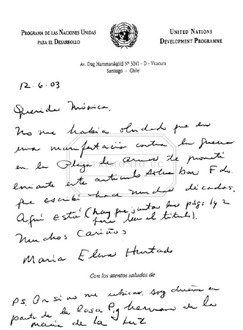 PROGRAMA DE LAS NACIONES UNIDAS
PARA EL DESARROLLO
UNITED NATIONS
DEVELOPMENT PROGRAMME
Av. Dag Hammarskjöld Nº 3241 - D - Vitacura
Santiago - Chile
12.6.03
Querida Mónica,
No me había olvidado que en
una manifestación contra la guerra
en la Plaza de Armas te prometí
enviarte este artículo sobre
que escribí hace muchas décadas.
Aquí está (hay que juntar las pags 1 y 2
para leer el título).
Muchos Cariños
María Elena Hurtado
Con los atentos saludos de
PS. Or si no me ubicas soy
parte de la Casa P y hermana de la
María de la Luz